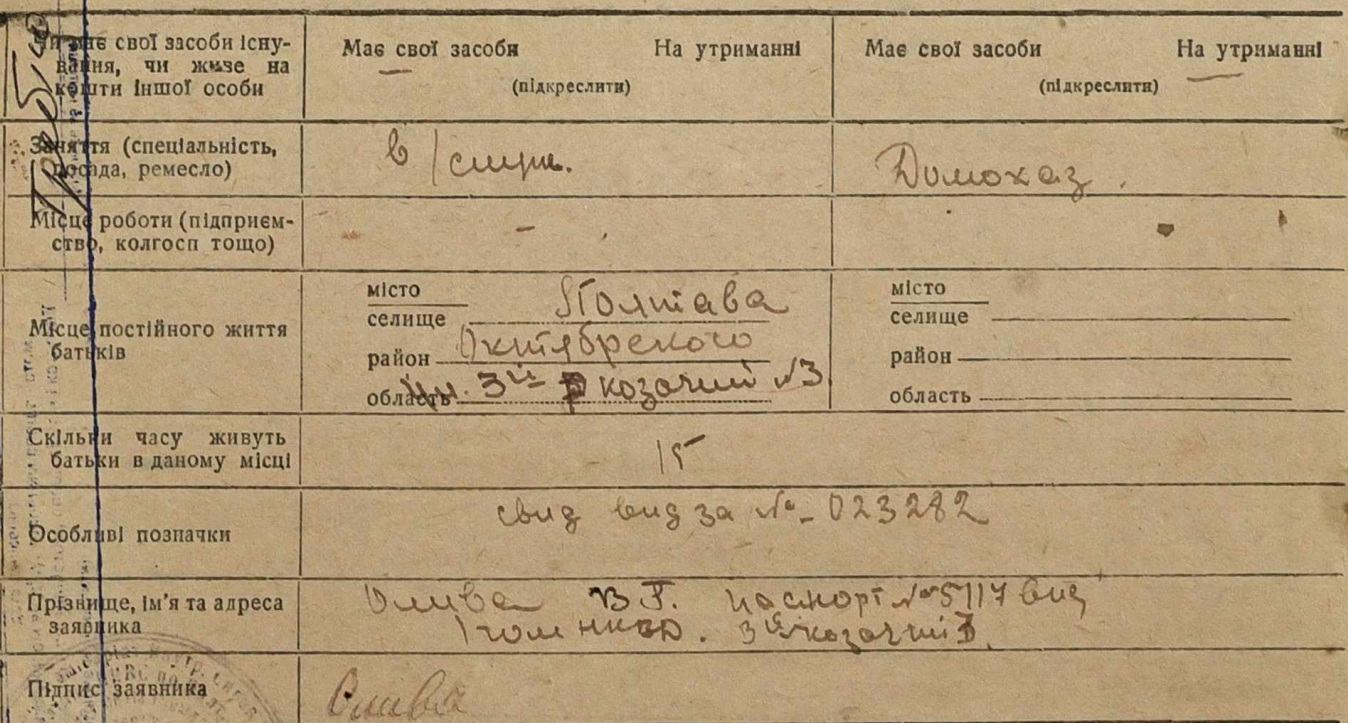 Чи має свої засоби існу-
вання, чи живе на
кошти іншої особи
Має свої засоби На утриманні
(підкреслити)
Має свої засоби На утриманні
(підкреслити)
Заняття (спеціальність,
посада, ремесло)
в/служ.
Домохаз.
Місце роботи (підприєм-
ство, колгосп тощо)
-
Місце постійного життя
батьків
місто
селище Полтава
район Октябрского
область 3й козачий №3
місто
селище
район
область
Скільки часу живуть
батьки в даному місці
15
Особливі позначки
свид вид за № - 023282
Прізвище, ім’я та адреса
заявника
Олива В Г. паспорт № 5117 вид
1 гом НКВД. 3й козачий 3
Підпис заявника
Олива